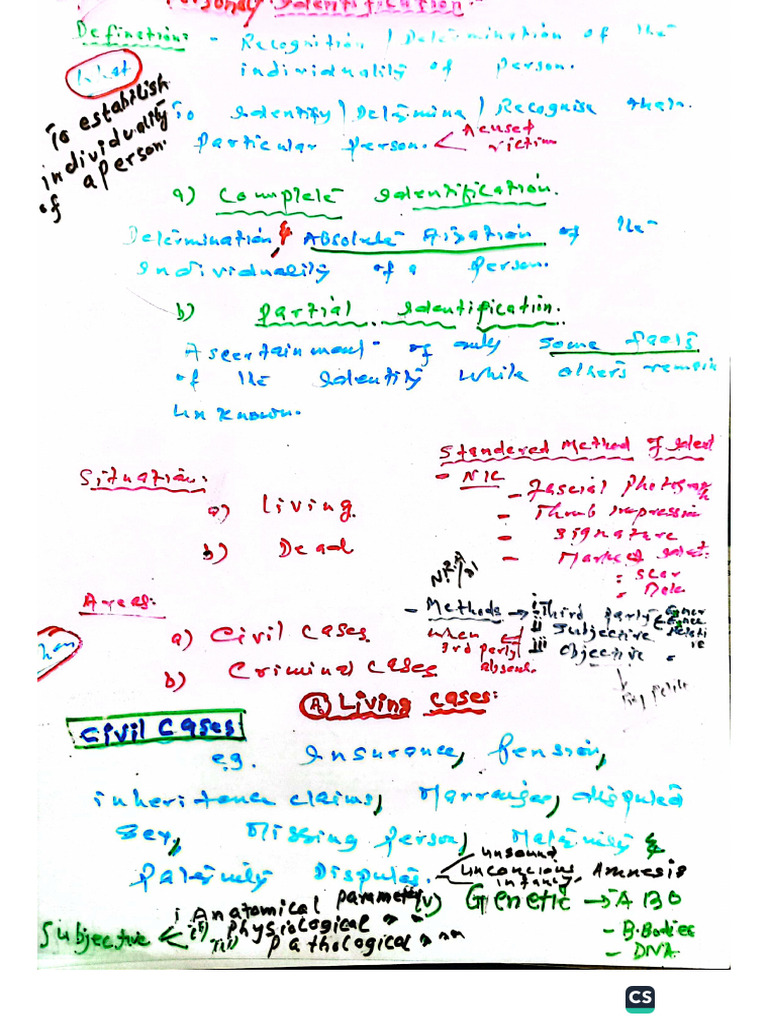 Personal Identification
Definition: - Recognition / Determination of the
individuality of person.
What
To estabilish
individuality
of a person.
To Identify / Determine / Recognise
Particular person. < Acused
victim
a) Complete Identification.
Determination & Absolute Fixation of the
Individuality of a person.
b) Partial Identification.
Ascertainment of only some facts
of the Identity while others remain
unknown.
Situation:
a) Living
b) Dead
Standered Method of Ident
- NIC
- Fascial Photograph
- Thumb impression
- Signature
- Mark of Ident:
: Scar
: Mole
Areas:
a) Civil cases
b) Criminal cases
- Methods → i Third party
ii Subjective
iii objective
when
3rd party
absent.
(A) Living cases:
Civil Cases:
e.g. Insurance, Pension,
inheritance claims, Marraige, disputed
Sex, Missing person, Maternity &
Paternity Disputes.
unsound
unconcious
infancy, Amnesis
Subjective < i Anatomical parameters
ii) Physiological " "
iii) Pathological " "
iv) Genetic → ABO
- B. Bodies
- DNA
CS